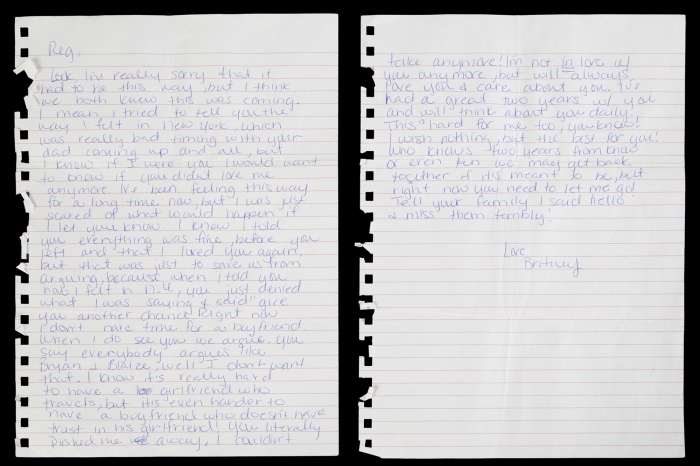 Reg,
Look, I'm really sorry that it
had to be this way, but I think
we both knew this was coming.
I mean I tried to tell you the
way I felt in New York, which
was really bad timing with your
dad coming up and all, but
I know if I were you I would want
to know if you didnt love me
anymore. I've been feeling this way
for a long time now, but I was just
scared of what would happen if
I let you know. I know I told
you everything was fine, before you
left and that I loved you again,
but that was just to save us from
arguing, because when I told you
how I felt in N.Y. you just denied
what I was saying & said give
you another chance. Right now
I don't have time for a boyfriend.
When I do see you we argue. You
say everybody argues like
Bryan & Blaize, well I don't want
that. I know its really hard
to have a girlfriend who
travels, but its even harder to
have a boyfriend who doesn't have
trust in his girlfriend! You literally
pushed me away, I couldn't
take anymore! I'm not in love w/
you anymore, but will always
love you & care about you. I've
had a great two years w/ you
and will think about you daily.
This hard for me too, you know!
I wish nothing but the best for you!
Who knows two years from now
or even ten we may get back
together if its meant to be, but
right now you need to let me go!
Tell your family I said hello
& miss them terribly!
Love
Britney